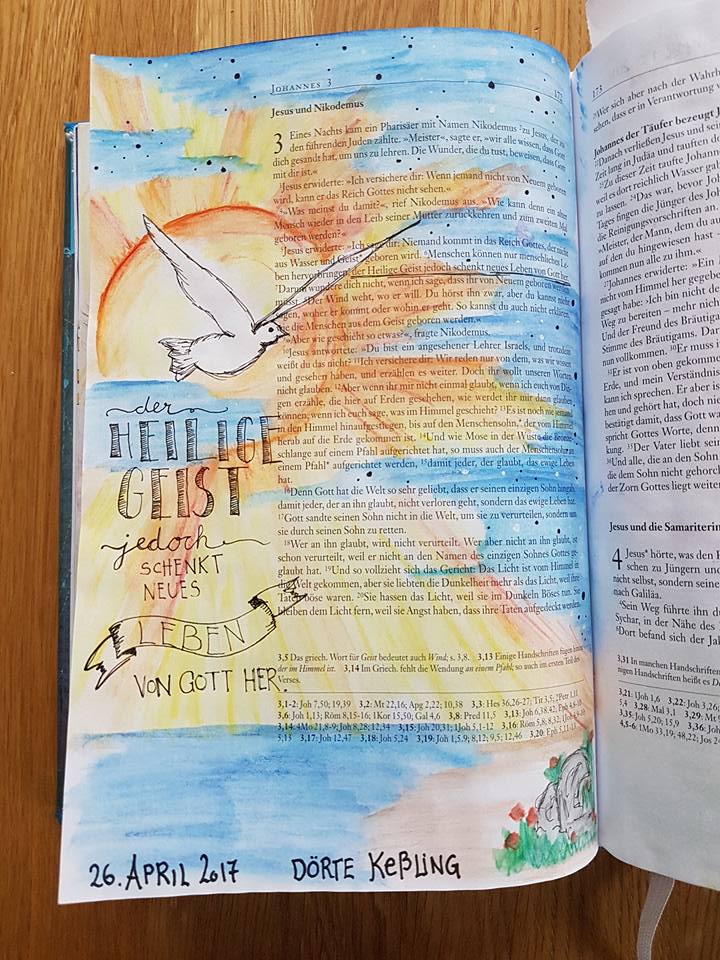 JOHANNES 3
172
Jesus und Nikodemus
3 Eines Nachts kam ein Pharisäer mit Namen Nikodemus ²zu Jesus, der zu
den führenden Juden zählte. »Meister«, sagte er, »wir alle wissen, dass Gott
dich gesandt hat, um uns zu lehren. Die Wunder, die du tust, beweisen, dass Gott
mit dir ist.«
³Jesus erwiderte: »Ich versichere dir: Wenn jemand nicht von Neuem geboren
wird, kann er das Reich Gottes nicht sehen.«
⁴»Was meinst du damit?«, rief Nikodemus aus. »Wie kann denn ein alter
Mensch wieder in den Leib seiner Mutter zurückkehren und zum zweiten Mal
geboren werden?«
⁵Jesus erwiderte: »Ich sage dir: Niemand kommt in das Reich Gottes, der nicht
aus Wasser und Geist* geboren wird. ⁶Menschen können nur menschliches Le-
ben hervorbringen, der Heilige Geist jedoch schenkt neues Leben von Gott her.
⁷Darum wundere dich nicht, wenn ich sage, dass ihr von Neuem geboren werden
müsst. ⁸Der Wind weht, wo er will. Du hörst ihn zwar, aber du kannst nicht
sagen, woher er kommt oder wohin er geht. So kannst du auch nicht erklären,
wie die Menschen aus dem Geist geboren werden.«
⁹»Aber wie geschieht so etwas?«, fragte Nikodemus.
¹⁰Jesus antwortete: »Du bist ein angesehener Lehrer Israels, und trotzdem
weißt du das nicht? ¹¹Ich versichere dir: Wir reden nur von dem, was wir wissen
und gesehen haben, und erzählen es weiter. Doch ihr wollt unseren Worten
nicht glauben. ¹²Aber wenn ihr mir nicht einmal glaubt, wenn ich euch von Din-
gen erzähle, die hier auf Erden geschehen, wie werdet ihr mir dann glauben
können, wenn ich euch sage, was im Himmel geschieht? ¹³Es ist noch nie jemand
in den Himmel hinaufgestiegen, bis auf den Menschensohn,* der vom Himmel
herab auf die Erde gekommen ist. ¹⁴Und wie Mose in der Wüste die Bronze-
schlange auf einem Pfahl aufgerichtet hat, so muss auch der Menschensohn an
einem Pfahl* aufgerichtet werden, ¹⁵damit jeder, der glaubt, das ewige Leben
hat.
¹⁶Denn Gott hat die Welt so sehr geliebt, dass er seinen einzigen Sohn hingab,
damit jeder, der an ihn glaubt, nicht verloren geht, sondern das ewige Leben hat.
¹⁷Gott sandte seinen Sohn nicht in die Welt, um sie zu verurteilen, sondern um
sie durch seinen Sohn zu retten.
¹⁸Wer an ihn glaubt, wird nicht verurteilt. Wer aber nicht an ihn glaubt, ist
schon verurteilt, weil er nicht an den Namen des einzigen Sohnes Gottes ge-
glaubt hat. ¹⁹Und so vollzieht sich das Gericht: Das Licht ist vom Himmel in
die Welt gekommen, aber sie liebten die Dunkelheit mehr als das Licht, weil ihre
Taten böse waren. ²⁰Sie hassen das Licht, weil sie im Dunkeln Böses tun. Sie
bleiben dem Licht fern, weil sie Angst haben, dass ihre Taten aufgedeckt werden.
3,5 Das griech. Wort für Geist bedeutet auch Wind; s. 3,8. 3,13 Einige Handschriften fügen hinzu
der im Himmel ist. 3,14 Im Griech. fehlt die Wendung an einem Pfahl; so auch im ersten Teil des
Verses.
3,1-2: Joh 7,50; 19,39 3,2: Mt 22,16; Apg 2,22; 10,38 3,3: Hes 36,26-27; Tit 3,5; 2Petr 1,11
3,6: Joh 1,13; Röm 8,15-16; 1Kor 15,50; Gal 4,6 3,8: Pred 11,5 3,13: Joh 6,38.42; Eph 4,8-10
3,14: 4Mo 21,8-9; Joh 8,28; 12,34 3,15: Joh 20,31; 1Joh 5,11-12 3,16: Röm 5,8; 8,32; 1Joh 4,9-10;
5,13 3,17: Joh 12,47 3,18: Joh 5,24 3,19: Joh 1,5.9; 8,12; 9,5; 12,46 3,20: Eph 5,11-13
der
HEILIGE
GEIST
jedoch
SCHENKT
NEUES
LEBEN
VON GOTT HER.
26. APRIL 2017 DÖRTE KEßLING
173
²¹Wer sich aber nach der Wahrh
sehen, dass er in Verantwortung v
Johannes der Täufer bezeugt J
²²Danach verließen Jesus und sein
Zeit lang in Judäa und tauften d
²³Zu dieser Zeit taufte Johann
weil es dort reichlich Wasser gab
zu lassen. ²⁴Das war, bevor Joh
Tages fingen die Jünger des Joh
die Reinigungsvorschriften an.
»Meister, der Mann, dem du an
auf den du hingewiesen hast
kommen nun alle zu ihm.«
²⁷Johannes erwiderte: »Ein
nicht vom Himmel her gegebe
gesagt habe: ›Ich bin nicht de
Weg zu bereiten – mehr nich
Und der Freund des Bräutig
Stimme des Bräutigams. Dar
nun vollkommen. ³⁰Er muss i
³¹Er ist von oben gekomm
Erde, und mein Verständnis
kann ich sprechen. Er aber is
hen und gehört hat, doch nie
bestätigt damit, dass Gott w
spricht Gottes Worte, denn
ihn. ³⁵Der Vater liebt sei
³⁶Und alle, die an den Sohn
die dem Sohn nicht gehorch
der Zorn Gottes liegt weiter
Jesus und die Samariterin
4 Jesus* hörte, was den
schen zu Jüngern und
nicht selbst, sondern seine
nach Galiläa.
⁴Sein Weg führte ihn d
Sychar, in der Nähe des
⁶Dort befand sich der Jak
3,31 In manchen Handschriften
nigen Handschriften heißt es D
3,21: Joh 1,6 3,22: Joh 3,26;
5,4 3,28: Mal 3,1 3,29: Mt
3,35: Joh 5,20; 15,9 3,36: Joh
4,5-6: 1Mo 33,19; 48,22; Jos 24